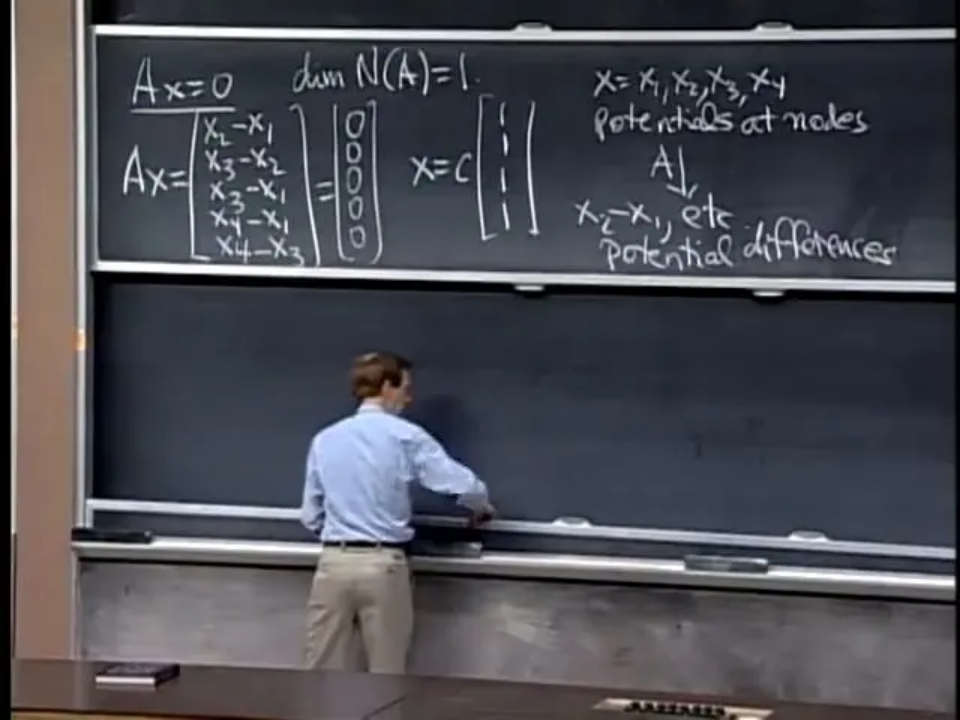 Ax=0   dim N(A)=1.
Ax= [ x₂-x₁
x₃-x₂
x₃-x₁
x₄-x₁
x₄-x₃ ] = [ 0
0
0
0
0 ]   x=c [ 1
1
1
1 ]
x= x₁,x₂,x₃,x₄
potentials at nodes
A↓
x₂-x₁, etc
potential differences